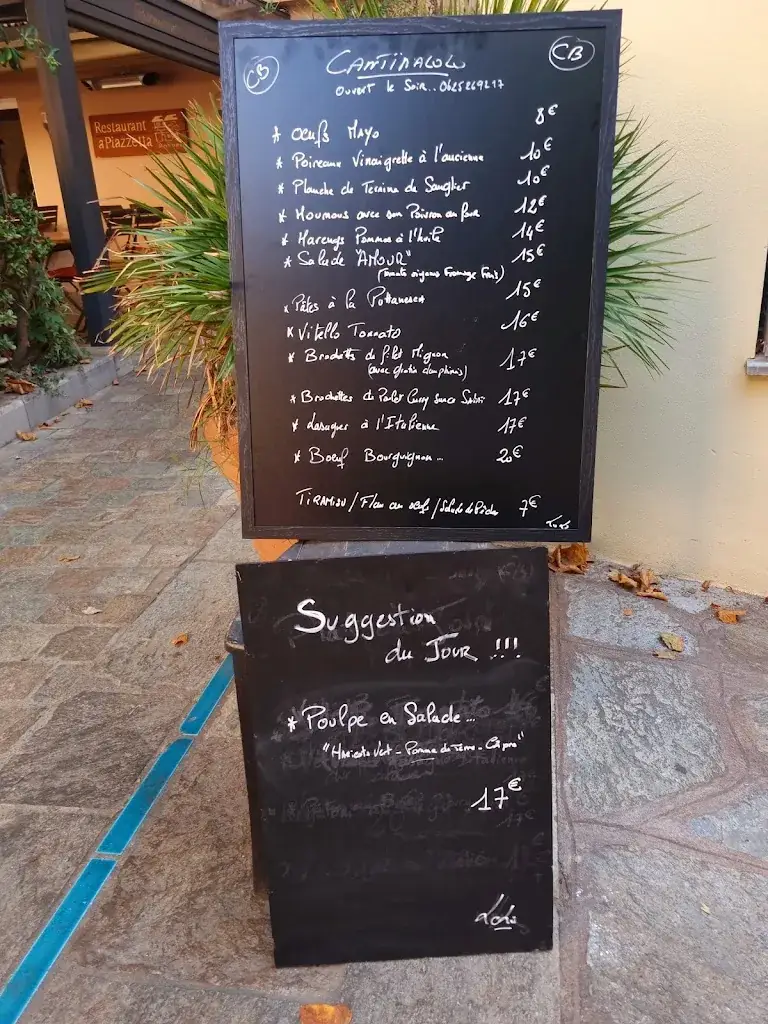 CB
CANTINALOLO
CB
Ouvert le Soir.. 0625269217
* Oeufs Mayo 8€
* Poireaux Vinaigrette à l'ancienne 10€
* Planche de Terrine de Sanglier 10€
* Houmous avec son Poivron au four 12€
* Harengs Pommes à l'huile 14€
* Salade "AMOUR" 15€
(Tomate oignons Fromage Frais)
* Pâtes à la Puttanesca 15€
* Vitello Tonnato 16€
* Brochette de filet Mignon 17€
(avec gratin dauphinois)
* Brochettes de Poulet Curry sauce 17€
* Lasagnes à l'Italienne 17€
* Boeuf Bourguignon... 20€
TIRAMISU / Flan au oeufs / Salade de Pêches 7€
Restaurant
a Piazzetta
Suggestion
du Jour !!!
* Poulpe en Salade...
"Haricots Vert - Pomme de Terre - Câpre"
17€
Lolo